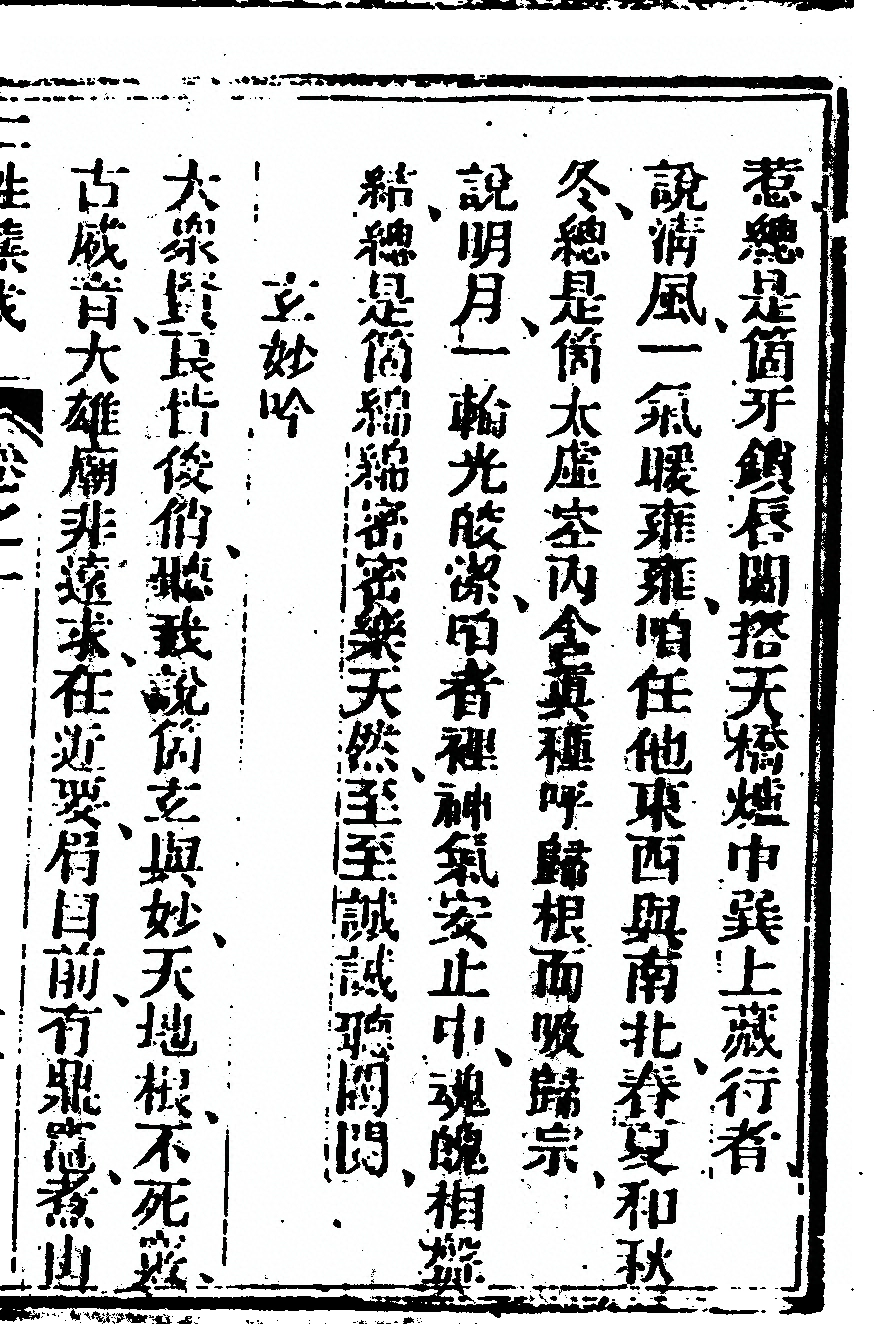 惹總是箇牙鎖唇關搭天橋爐中巽上藏行者
說清風一氣暖雍雍咱任他東西與南北春夏和秋
冬總是箇太虛空內含眞種呼歸根而吸歸宗
說明月一輪光皎潔咱者裡神氣安止中魂魄相凝
結總是箇綿綿密密樂天然至至誠誠聽關閉
玄妙吟
大衆賢良皆俊俏聽我說箇玄與妙天地根不死竅
古威音大雄廟非遠求在近要眉目前有鼎竈煮山